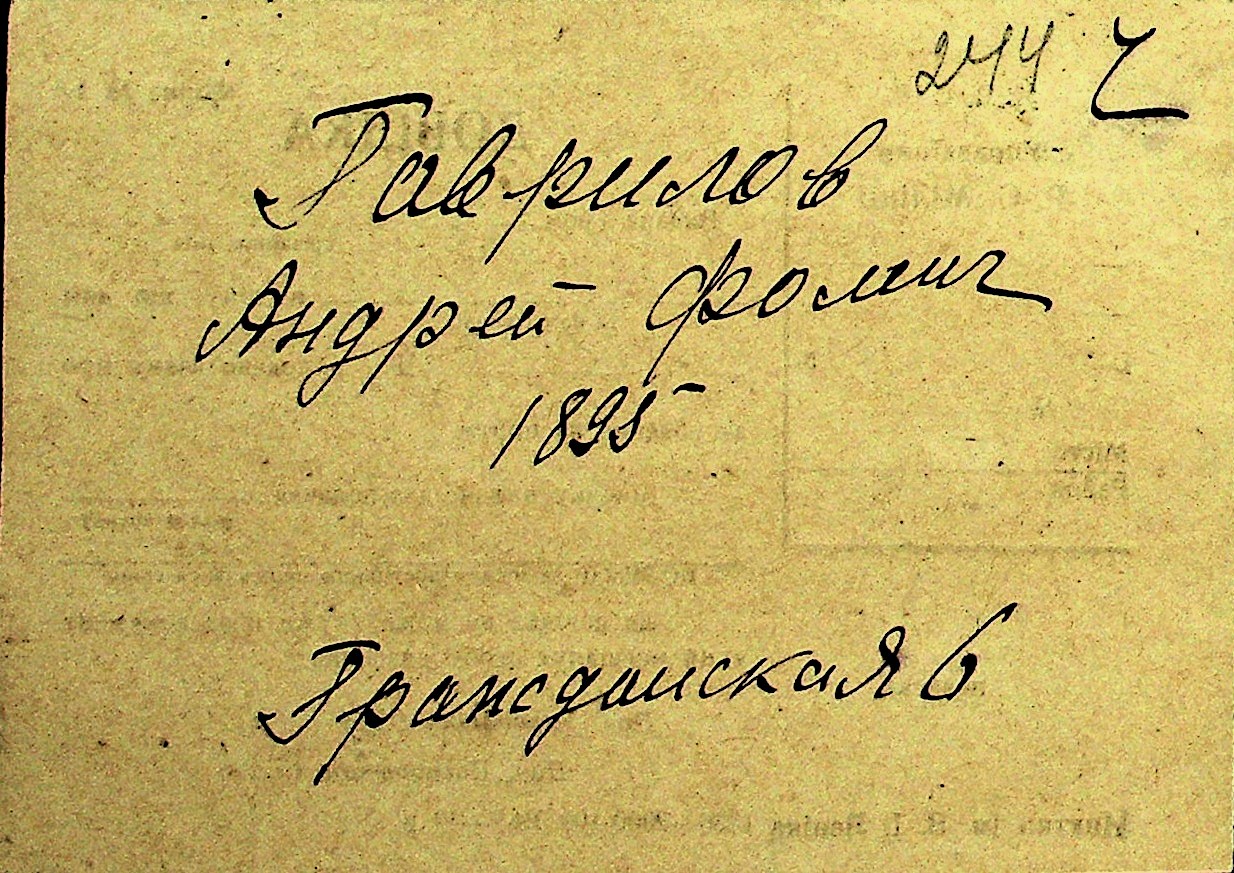 244 ч
Гаврилов
Андрей Фомич
1895
Гражданская 6